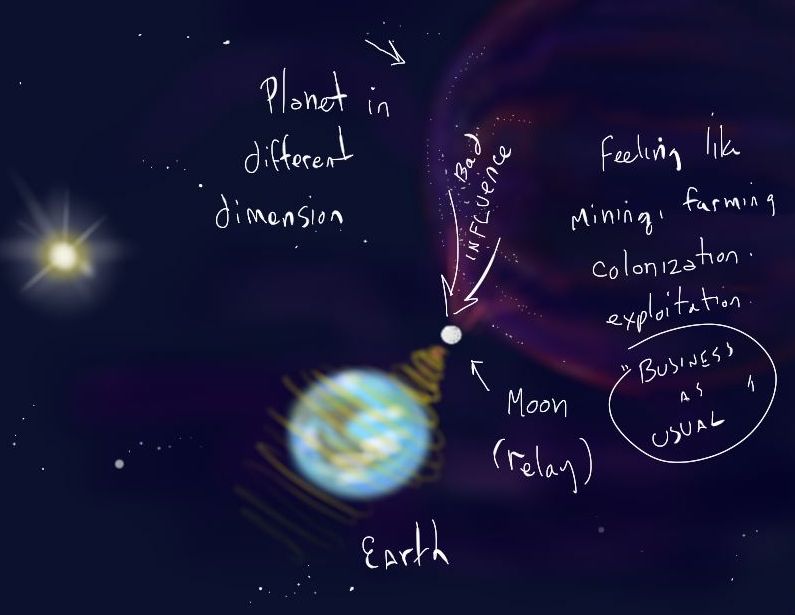 Planet in
different
dimension
Bad
INFLUENCE
Feeling like
mining, farming
colonization.
exploitation.
"BUSINESS
AS "
USUAL
Moon
(relay)
Earth